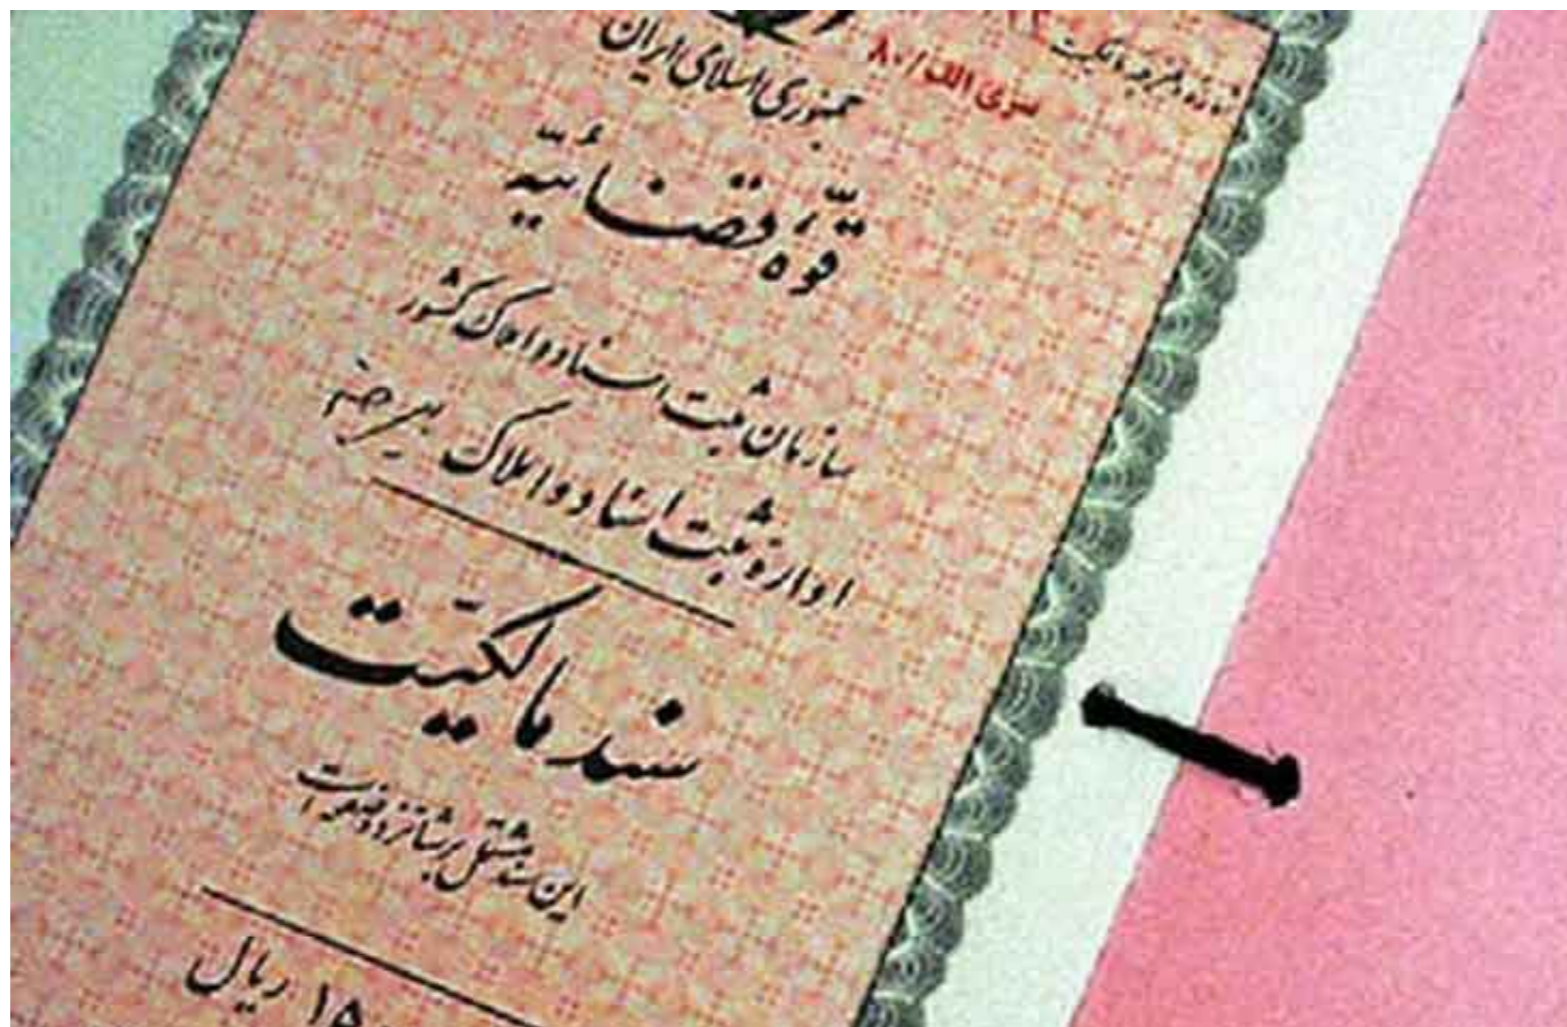 شماره دفترچه مالکیت
سری الف/۸۰
جمهوری اسلامی ایران
قوّهٔ قضائیّه
سازمان ثبت اسناد و املاک کشور
ادارهٔ ثبت اسناد و املاک
سند مالکیّت
این سند مشتمل بر شانزده صفحه است
۱۵ ریال